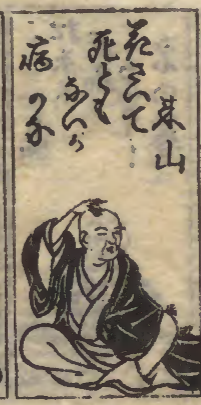 来山
花さいて
死とむ
ないか
病かな